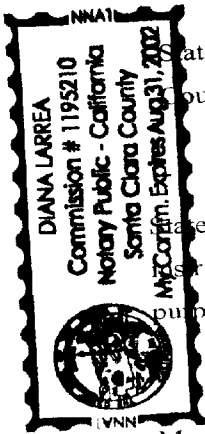 NNA1
DIANA LARREA
Commission # 1195210
Notary Public - California
Santa Clara County
My Comm. Expires Aug 31, 2002
NNA